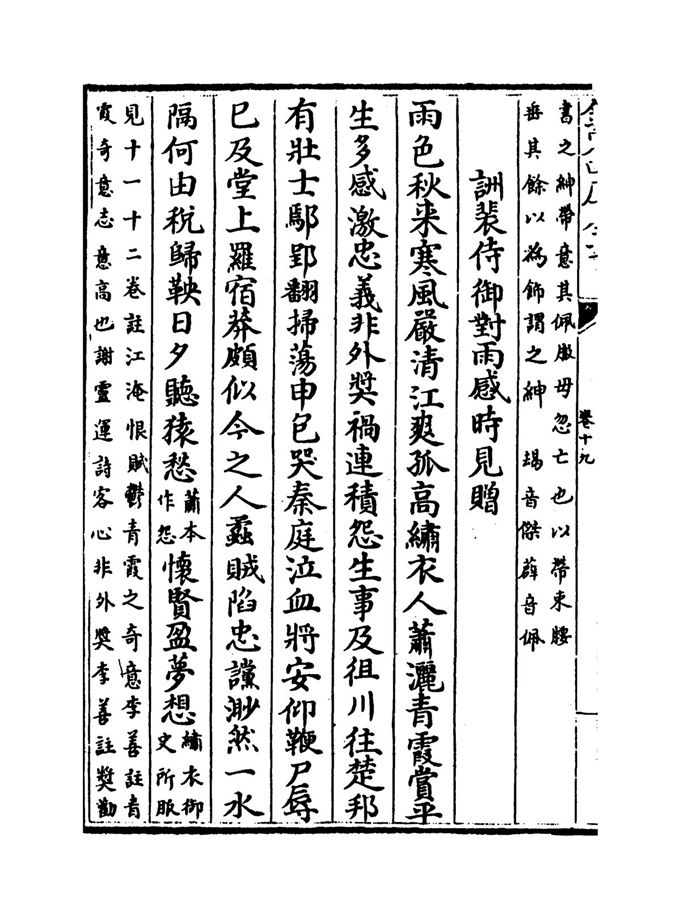 書之紳帶意其佩服毋忽亡也以帶束腰
垂其餘以為飾謂之紳　竭音傑薜音佩
訓裴侍御對雨感時見贈
雨色秋来寒風嚴清江爽孤高繡衣人蕭灑青霞賞平
生多感激忠義非外奬禍連積怨生事及徂川往楚邦
有壯士鄢郢翻掃蕩申包哭秦庭泣血將安仰鞭尸辱
已及堂上羅宿莽頗似今之人蟊賊陷忠讜渺然一水
隔何由税歸鞅日夕聽猿愁蕭本作怨懷賢盈夢想繡衣御史所服
見十一十二卷註江淹恨賦鬱青霞之奇意李善註青
霞奇意志意高也謝靈運詩客心非外奬李善註奬勸
卷十九